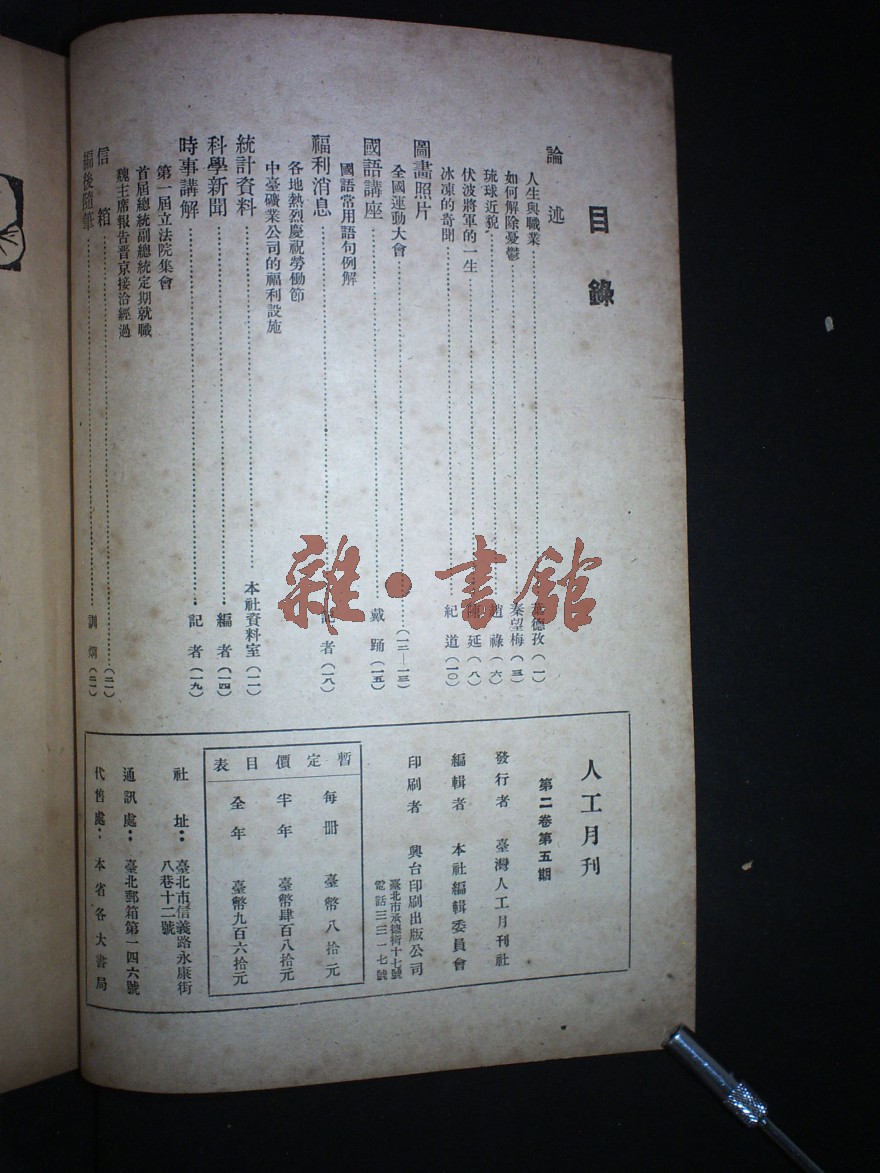 目錄
論述
人生與職業……德孜（一）
如何解除憂鬱……秦望梅（三）
琉球近貌……趙祿（六）
伏波將軍的一生……延（八）
冰凍的奇聞……紀道（一〇）
圖畫照片
全國運動大會……（一二—一三）
國語講座……戴踊（一五）
國語常用語句例解
福利消息……記者（一八）
各地熱烈慶祝勞働節
中臺礦業公司的福利設施
統計資料……本社資料室（一一）
科學新聞……編者（一四）
時事講解……記者（一九）
第一屆立法院集會
首屆總統副總統定期就職
魏主席報告晋京接洽經過
信箱……（二一）
編後隨筆……訓（二一）
人工月刊
第二卷第五期
發行者 臺灣人工月刊社
編輯者 本社編輯委員會
印刷者 興台印刷出版公司
臺北市承德街十七號
電話三三一七號
暫定價目表
每冊 臺幣八拾元
半年 臺幣肆百八拾元
全年 臺幣九百六拾元
社址：臺北市信義路永康街
八巷十二號
通訊處：臺北郵箱第一四六號
代售處：本省各大書局
雜·書館